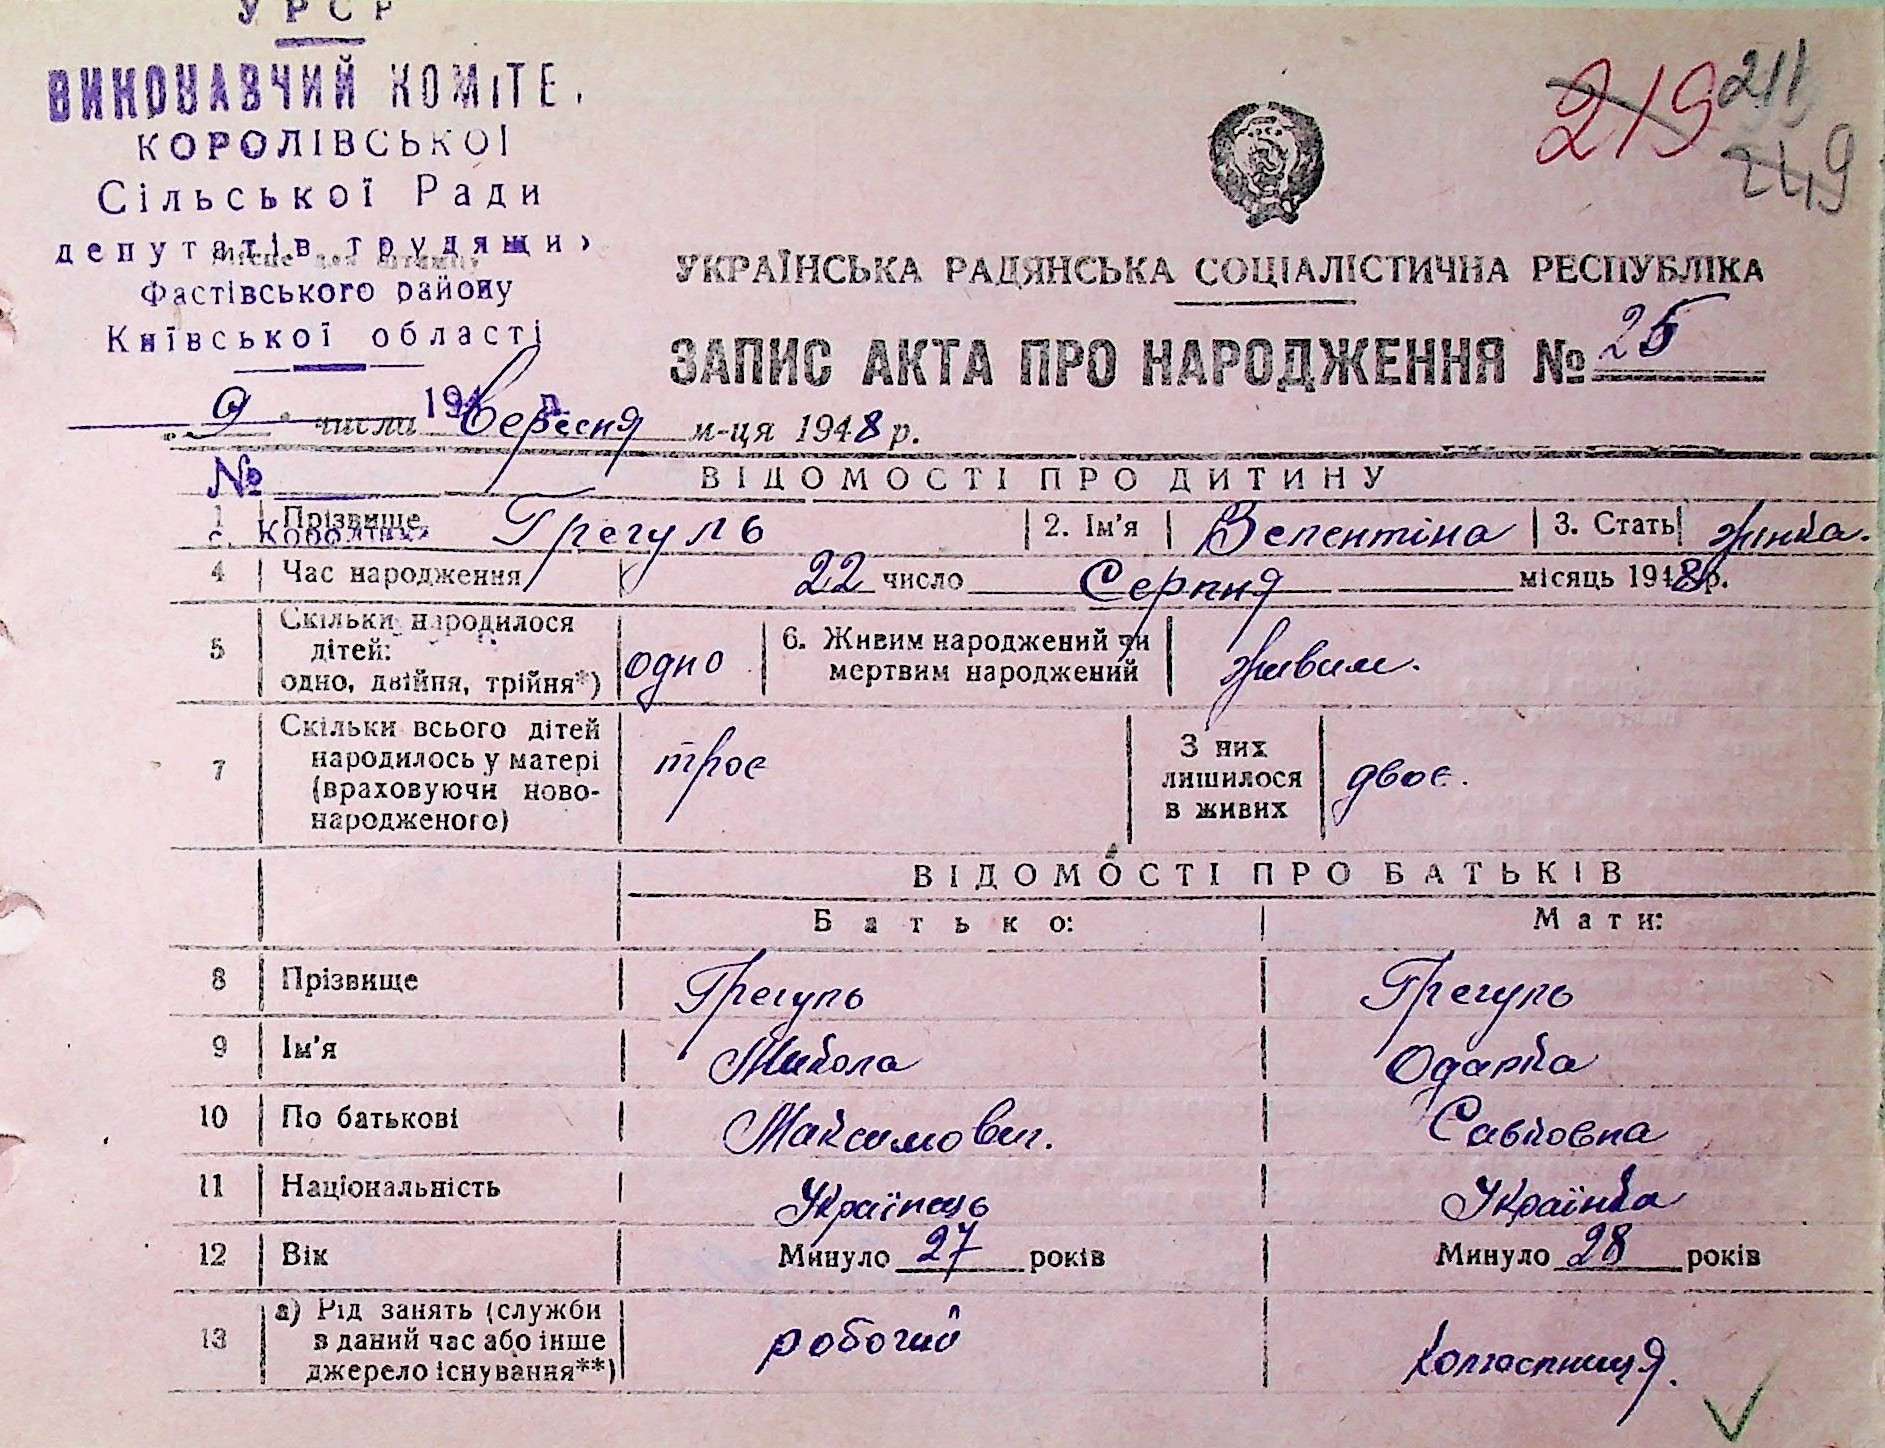 УРСР
ВИКОНАВЧИЙ КОМІТЕ
КОРОЛІВСЬКОЇ
Сільської Ради
депутатів трудящи
Місце для штампу
Фастівського району
Київської області
219 211
249
УКРАЇНСЬКА РАДЯНСЬКА СОЦІАЛІСТИЧНА РЕСПУБЛІКА
ЗАПИС АКТА ПРО НАРОДЖЕННЯ № 25
194 р.
„ 9 " числа вересня м-ця 1948 р.
№
ВІДОМОСТІ ПРО ДИТИНУ
1 Прізвище Грегуль 2. Ім'я Велентіна 3. Стать жінка.
с. Королівка
4 Час народження 22 число Серпня місяць 1948 р.
5 Скільки народилося дітей: одно, двійня, трійня*) одно 6. Живим народжений чи мертвим народжений живим.
7 Скільки всього дітей народилось у матері (враховуючи ново-народженого) троє З них лишилося в живих двоє.
ВІДОМОСТІ ПРО БАТЬКІВ
Батько: Мати:
8 Прізвище Грегуль Грегуль
9 Ім'я Микола Одарка
10 По батькові Максимович. Савковна
11 Національність Українець Українка
12 Вік Минуло 27 років Минуло 28 років
13 а) Рід занять (служби в даний час або інше джерело існування**) робочий колгоспниця.